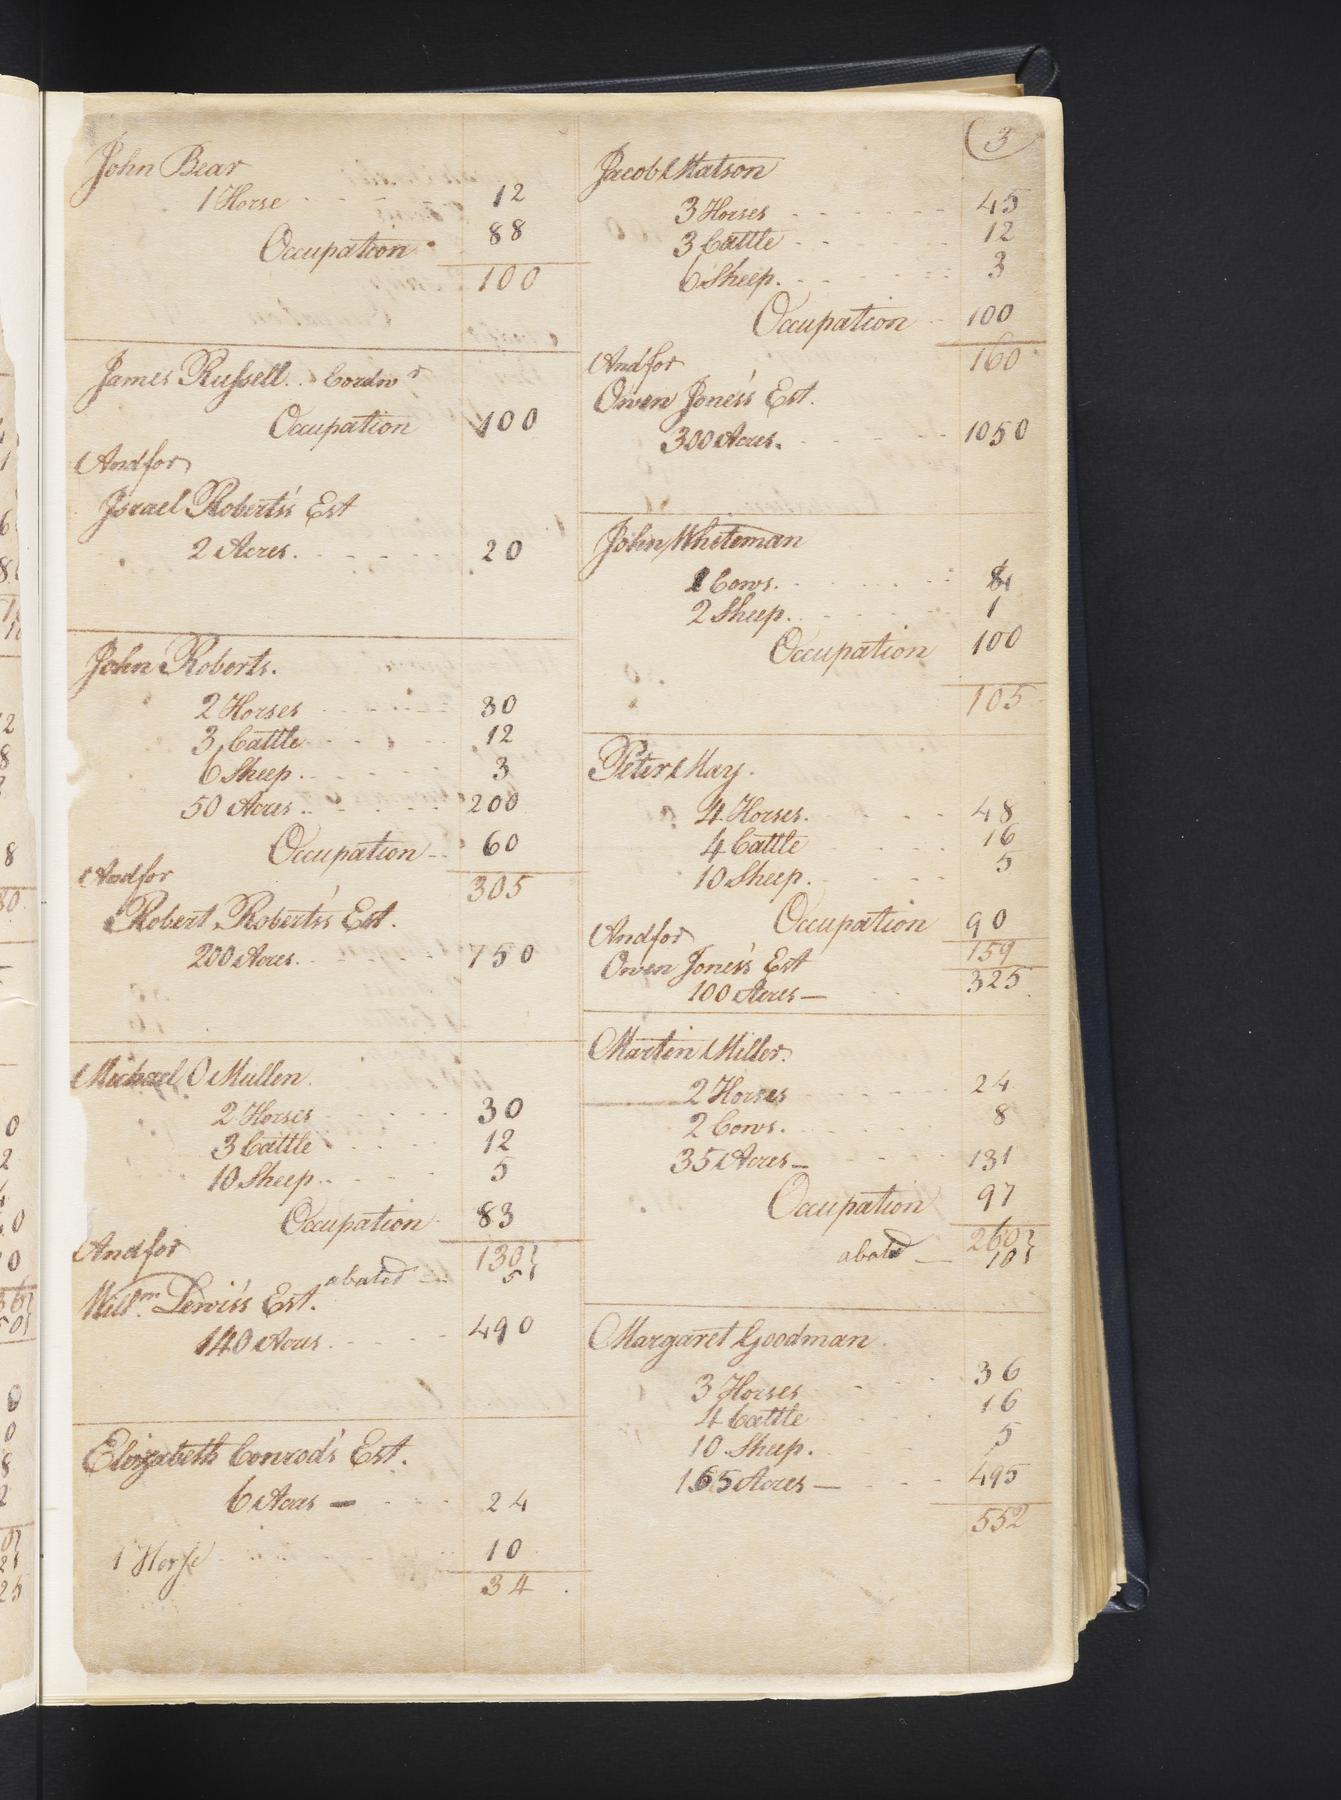 3
John Bear
1 Horse 12
Occupation 88
100
James Russell. Cordwr
Occupation 100
And for
Israel Roberts's Est
2 Acres. 20
John Roberts.
2 Horses 30
3 Cattle 12
6 Sheep. 3
50 Acres. 200
Occupation 60
305
And for
Robert Roberts's Est.
200 Acres. 750
Michael O Mullen.
2 Horses 30
3 Cattle 12
10 Sheep. 5
Occupation 83
130
And for
abated 5
Willm. Lewis's Est.
140 Acres. 490
Elizabeth Conrod's Est.
6 Acres — 24
1 Horse 10
34
Jacob Matson
3 Horses 45
3 Cattle 12
6 Sheep. 3
Occupation 100
160
And for
Owen Jones's Est.
300 Acres. 1050
John Whiteman
1 Cows. 4
2 Sheep. 1
Occupation 100
105
Peter May.
4 Horses. 48
4 Cattle 16
10 Sheep. 5
Occupation 90
And for 159
Owen Jones's Est
100 Acres — 325
Martin Miller.
2 Horses 24
2 Cows. 8
35 Acres — 131
Occupation 97
260
abated — 10
Margaret Goodman
3 Horses 36
4 Cattle 16
10 Sheep. 5
165 Acres — 495
552